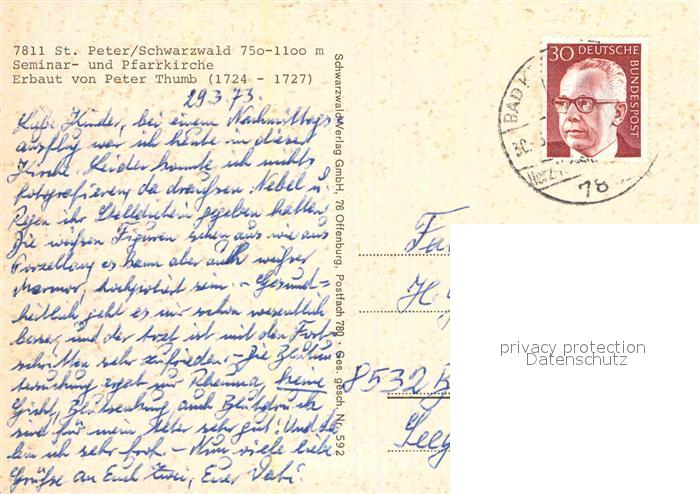 7811 St. Peter/Schwarzwald 750-1100 m
Seminar- und Pfarrkirche
Erbaut von Peter Thumb (1724 - 1727)
29.3.73.
Liebe Kinder, bei einem Nachmittags
ausflug war ich heute in dieser
Kirche. Leider konnte ich nichts
fotografieren, da draußen Nebel u.
Regen ihr Stelldichein gegeben hatten.
Die weißen Figuren sehen aus wie aus
Porzellan, es kann aber auch weißer
Marmor, hochpoliert sein. - Gesund=
heitlich geht es mir schon wesentlich
besser, und der Arzt ist mit den Fort-
schritten sehr zufrieden. - Die Blutun
tersuchung ergab nur Rheuma, keine
Gicht, Blutsenkung auch Blutdruck
sind für mein Alter sehr gut! Und da
bin ich sehr froh. - Nun viele liebe
Grüße an Euch zwei, Euer Vati.
Schwarzwald-Verlag GmbH, 78 Offenburg, Postfach 780 · Ges. gesch. Nr. 592
30 DEUTSCHE
BUNDESPOST
BAD
30.
Herz
78
Fa
H.
8532 B
Seeg
privacy protection
Datenschutz